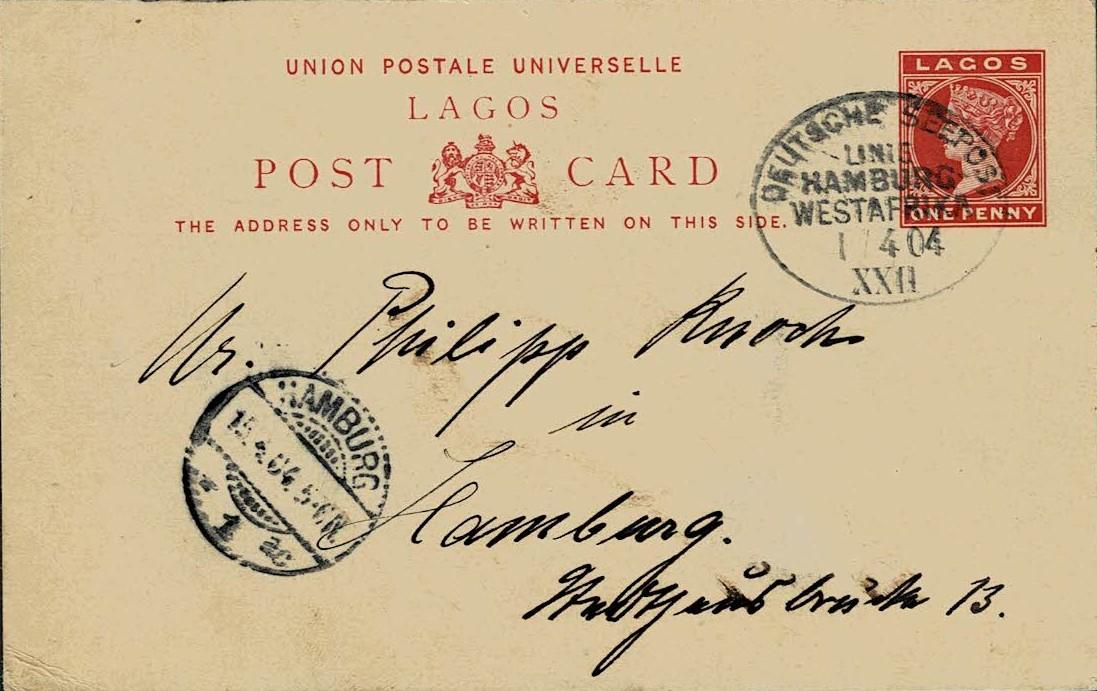 UNION POSTALE UNIVERSELLE
LAGOS
POST CARD
THE ADDRESS ONLY TO BE WRITTEN ON THIS SIDE.
LAGOS
ONE PENNY
DEUTSCHE SEEPOST
LINIE
HAMBURG
WESTAFRIKA
1 4 04
XXII
Mr. Philipp Knoch
in
Hamburg.
Stadthausbrücke 13.
HAMBURG
15.4.04.5-6N.
* 1 ac